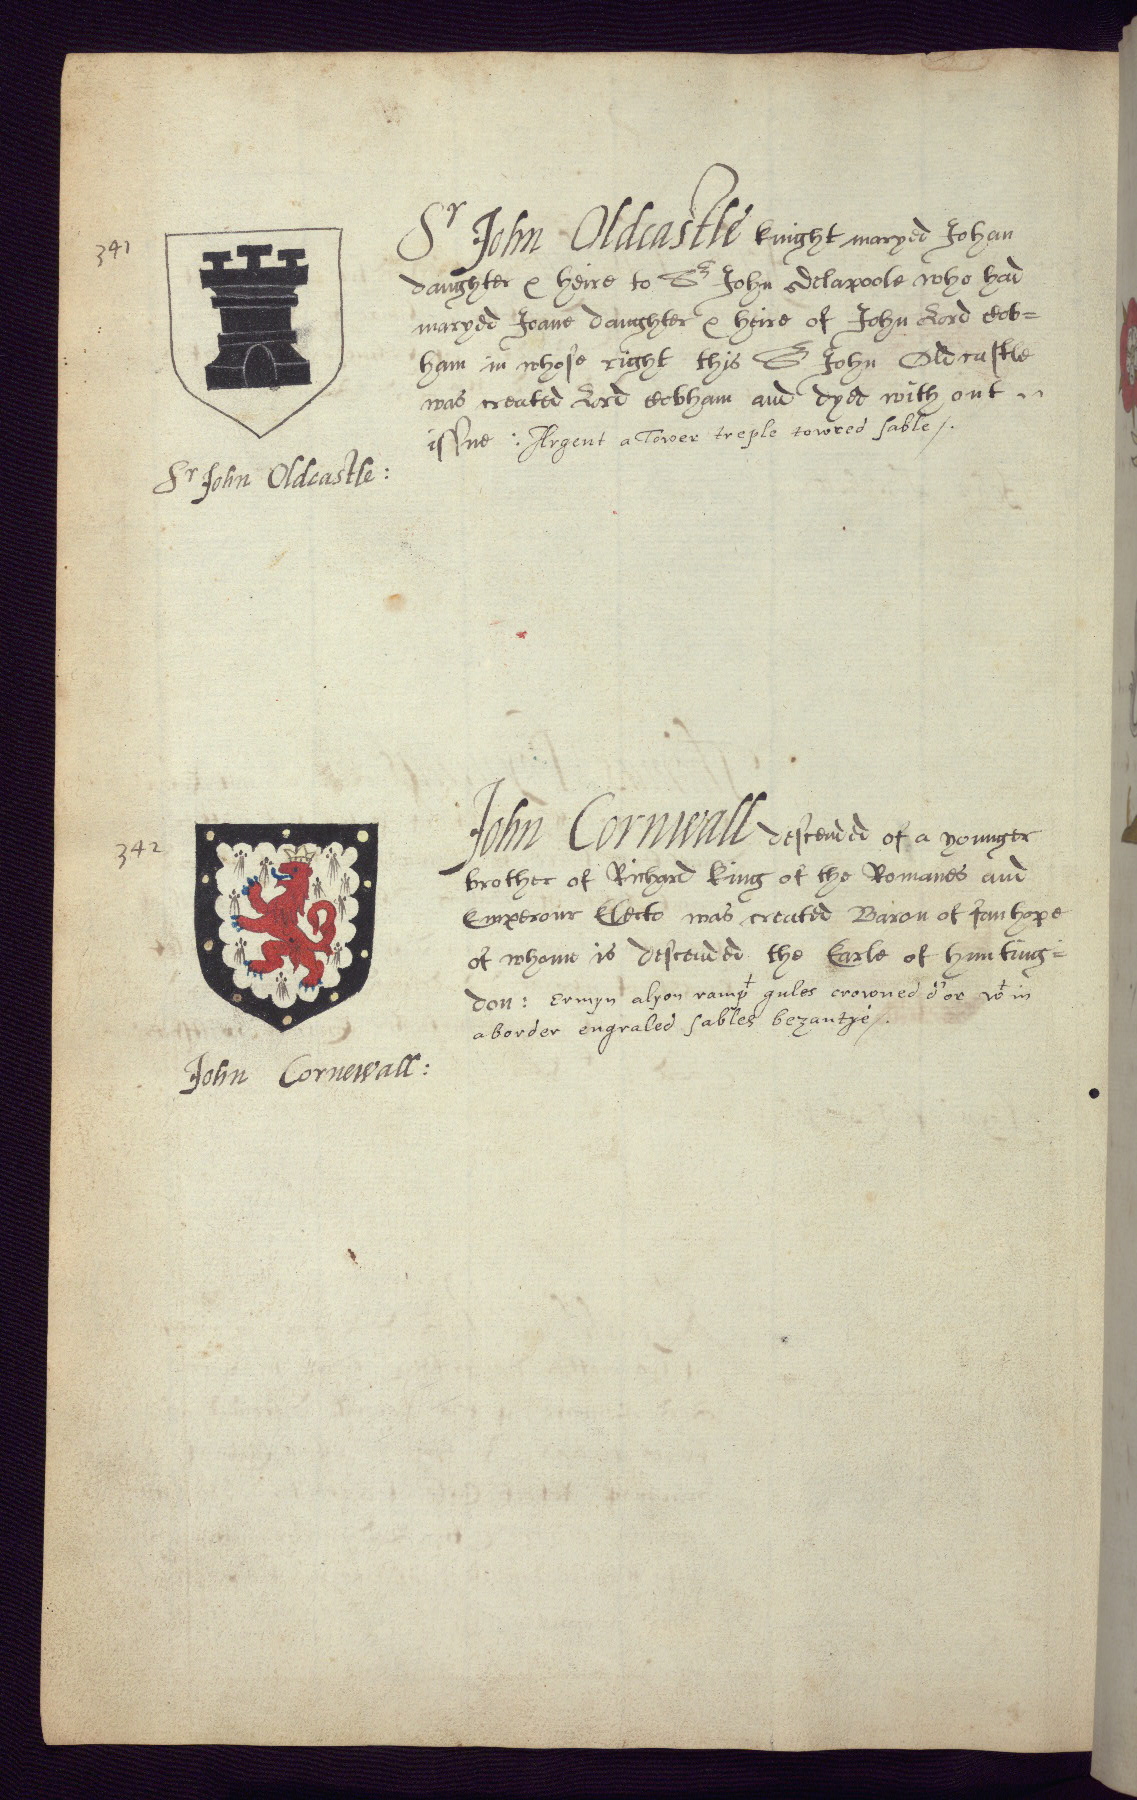 341
Sr John Oldcastle knight maryed Johan
daughter & heire to Sr John Delapoole who had
maryed Joane daughter & heire of John Lord Cob=
ham in whose right this Sr John Oldcastle
was created Lord Cobham and dyed with out
issue :. Argent a Tower treple towred sable /.
Sr John Oldcastle :
342
John Cornwall descended of a younger
brother of Richard King of the Romanes and
Emperour Electo was created Baron of fanhope
of whome is descended the Earle of hunting=
don : Ermyn alyon rampt gules crowned d'or wt in
a border engraled sables bezantye /.
John Cornewall :